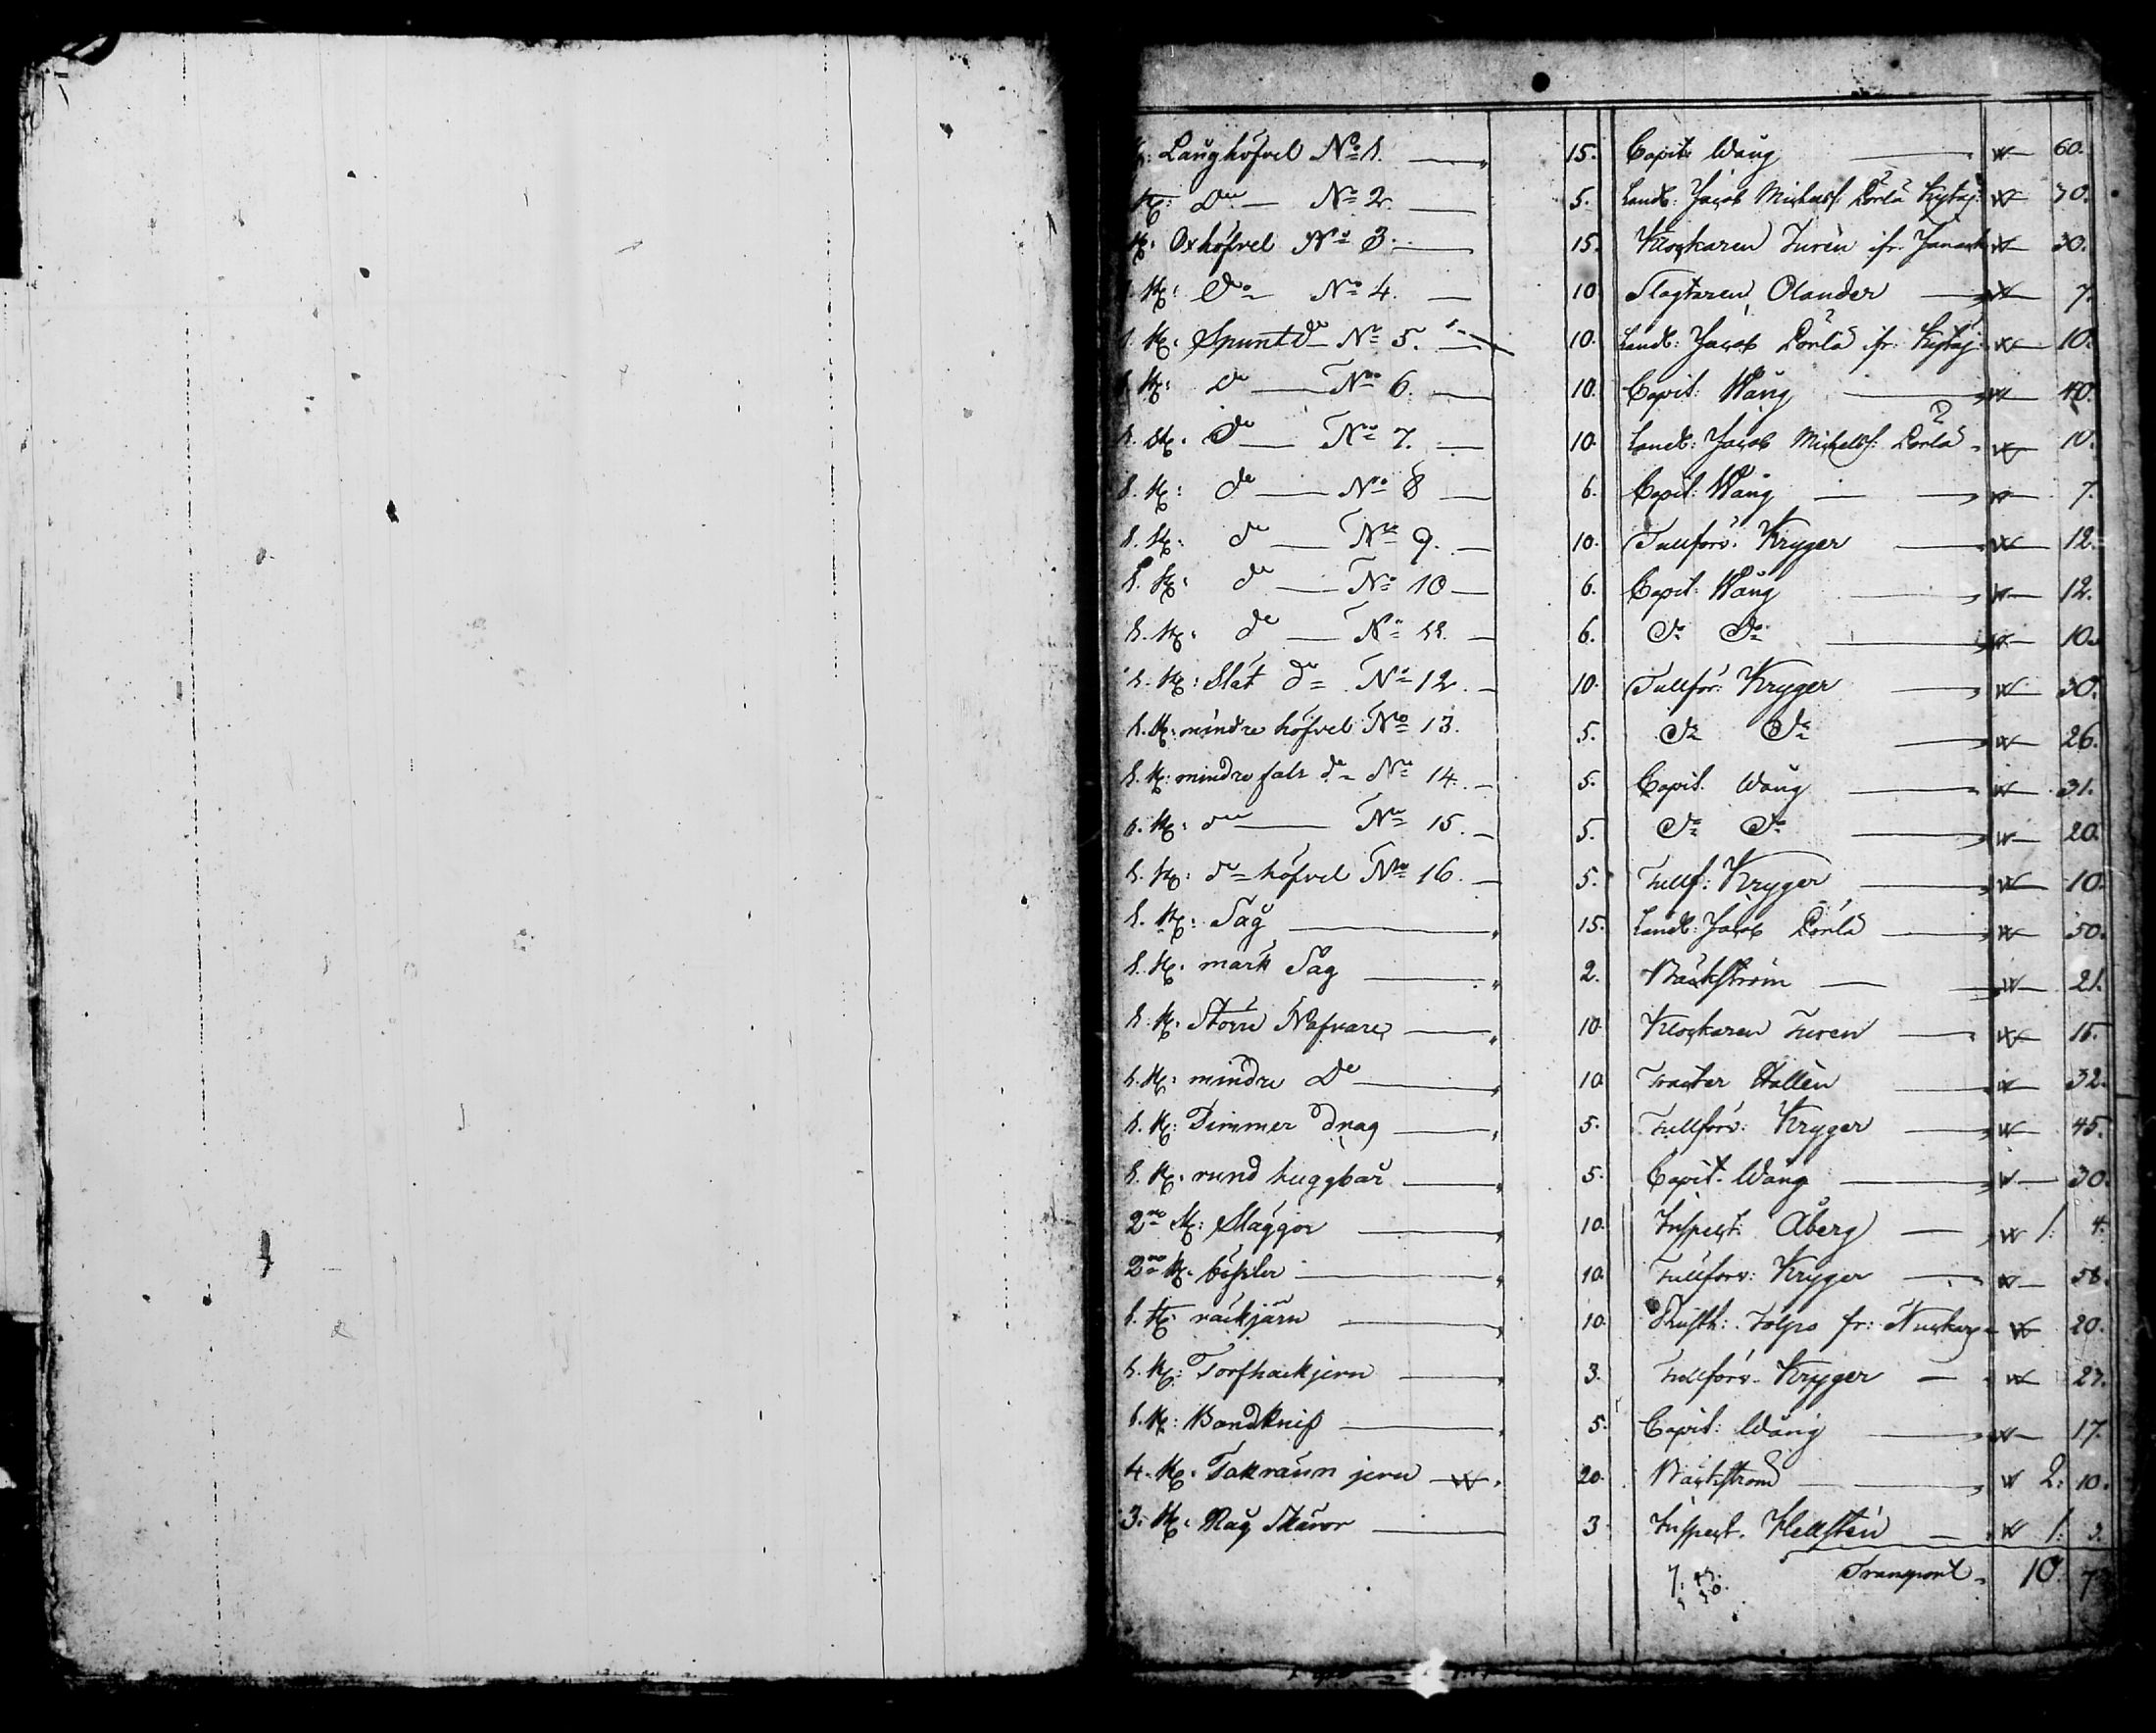 St: Långhöfvel No 1. — 15. Capit: Wång — " — 60.
St: Do — No 2. — 5. Landb: Jacob Michelss: Pörlä — " — 30.
St: Oxhöfvel No 3. — 15. Klockaren Turén ifr. — " — 30.
1. St: Do — No 4. — 10 Slagtaren Olander — " — 7.
1. St: Spunt do No 5. — 10. Landb: Jacob Pörlä ifr: — " — 10.
1. St: do — No 6. — 10. Capit: Wång — " — 40.
1. St: do — No 7. — 10. Landb: Jacob Michelss: Pörlä — " — 10.
1. St: do — No 8 — 6. Capit: Wång — " — 7.
1. St: do — No 9. — 10. Tullförv: Kryger — " — 12.
1. St: do — No 10 — 6. Capit: Wång — " — 12.
1. St: do — No 11. — 6. Do Do — " — 10.
1. St: Slät do No 12. — 10. Tullför: Kryger — " — 30.
1. St: mindre höfvel No 13. 5. Do Do — " — 26.
1. St: mindre fals do No 14. — 5. Capit. Wång — " — 31.
1. St: do — No 15. — 5. Do Do — " — 20.
1. St: do höfvel No 16. — 5. Tullf: Kryger — " — 10.
1. St: Såg — " 15. Landb: Jacob Pörlä — " — 50.
1. St: mark Såg — " 2. Bäckström — " — 21.
1. St: Större Nafvare — " 10. Klockaren Turén — " — 15.
1. St: mindre Do — " 10. Tracteur Hallén — " — 32.
1. St: Timmer drag — " 5. Tullförv: Kryger — " — 45.
1. St: rund huggbår — " 5. Capit. Wång — " — 30.
2ne St: Släggor — " 10. Inspect: Åberg — " 1: 4.
2ne St: — " 10. Tullförv: Kryger — " — 58.
1. St: räckjärn — " 10. Rusth: fr: — " — 20.
1. St: Torfhackjern — " 3. Tullförv. Kryger — " — 27.
1. St: Bandknif — " 5. Capit: Wång — " — 17.
4. St: Takränn jern — " 20. Bäckström — " 2: 10.
3. St: Råg Skäror — 3 Inspect. Hellstén — " 1: 3.
Transport — 10. 7